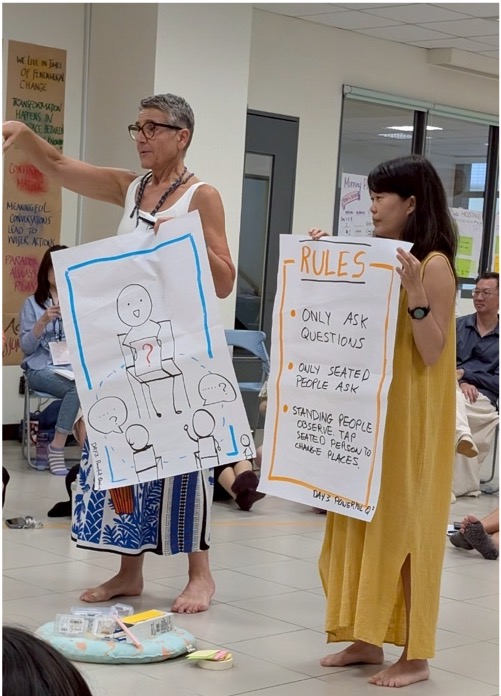 WE LIVE IN TIMES
OF FUNDAMENTAL
CHANGE
TRANSFORMATION
HAPPENS IN
BETWEEN
MEANINGFUL
CONVERSATIONS
LEAD TO
WISER ACTIONS
?
?
?
RULES
• ONLY ASK
QUESTIONS
• ONLY SEATED
PEOPLE ASK
• STANDING PEOPLE
OBSERVE. TAP
SEATED PERSON TO
CHANGE PLACES.
DAY3 POWERFUL Q?